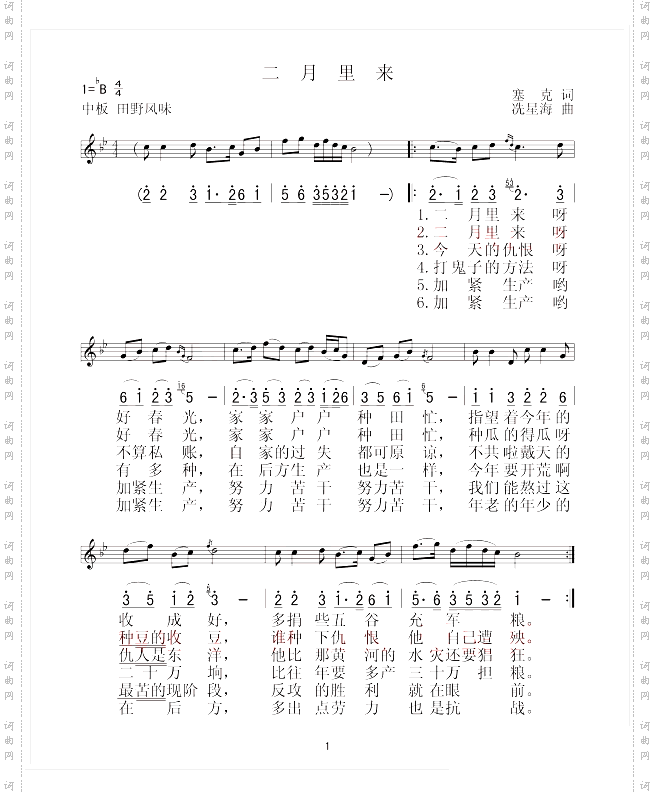 二 月 里 来
1=♭B 4/4
中板 田野风味
塞 克 词
冼星海 曲
(2 2 3 1· 2 6 1 | 5 6 3 5 3 2 1 —) |: 2· 1 2 3 2· 3
1.二 月里 来 呀
2.二 月里 来 呀
3.今 天的仇恨 呀
4.打鬼子的方法 呀
5.加 紧 生产 哟
6.加 紧 生产 哟
6 1 2 3 5 — | 2· 3 5 3 2 3 1 2 6 | 3 5 6 1 5 — | 1 1 3 2 2 6
好 春 光， 家 家 户 户 种 田 忙， 指望着今年的
好 春 光， 家 家 户 户 种 田 忙， 种瓜的得瓜呀
不算私 账， 自 家的过 失 都可原 谅， 不共啦戴天的
有 多 种， 在 后方生 产 也是一 样， 今年要开荒啊
加紧生 产， 努 力 苦 干 努力苦 干， 我们能熬过这
加紧生 产， 努 力 苦 干 努力苦 干， 年老的年少的
3 5 1 2 3 — | 2 2 3 1· 2 6 1 | 5· 6 3 5 3 2 1 — :|
收 成 好， 多捐 些五 谷 充 军 粮。
种豆的收 豆， 谁种 下仇 恨 他 自己遭 殃。
仇人是东 洋， 他比 那黄 河的 水 灾还要猖 狂。
二 十 万 垧， 比往 年要 多产 三 十万 担 粮。
最苦的现阶 段， 反攻 的胜 利 就 在眼 前。
在 后 方， 多出 点劳 力 也 是抗 战。
1
词曲网